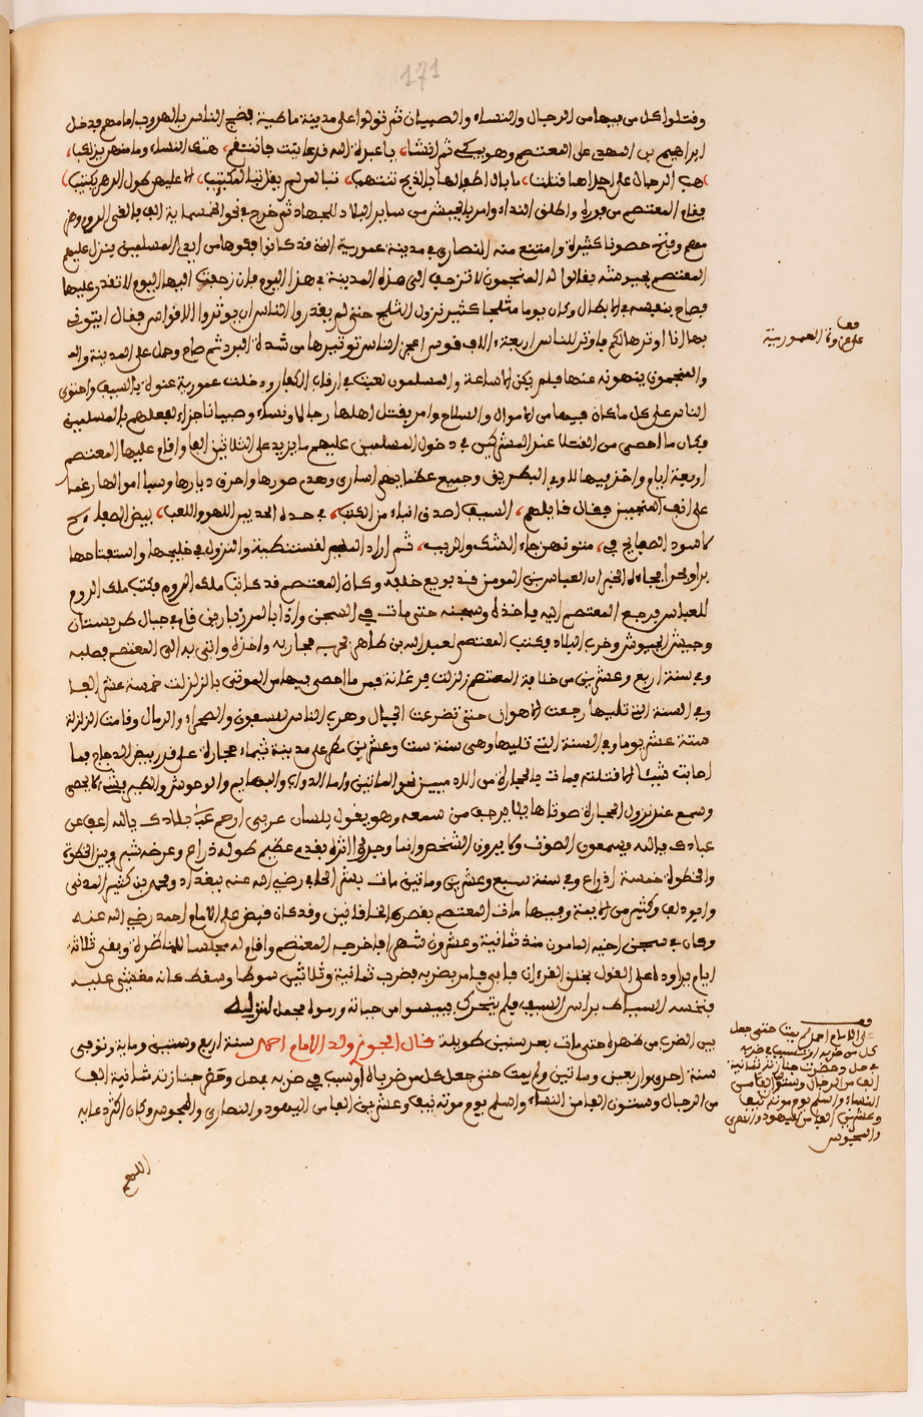 171
وقتلوا كل من فيها من الرجال والنساء والصبيان ثم نزلوا على مدينة ماطية فضج الناس بالهروب امامهم فدخل
ابراهيم بن المهدي على المعتصم وهو يبكي ثم انشا، يا غيرة الله قد عاينت فانتقم، هتك النساء وما منهن يرتكب،
هب الرجال على اجرامها قتلت، ما بال اطفالها بالذبح تنتهب،
فقام المعتصم من فوره واطلق النداء وامر بالجيش من ساير البلاد للجهاد ثم خرج في نحو الخمسماية الف فالقى الروم وهزمهم
معهم وفتح حصونا كثيرة وامتنع منه النصارى في مدينة عمورية التي قد كانوا فيها من ايدي المسلمين فنزل عليهم
المعتصم بجيوشه فقالوا له المنجمون لا تزحف الى هذه المدينة في هذا اليوم فان زحفت اليها اليوم لا تقدر عليها
فصاح بنفسه في الابطال وكان يوما مثلجا كثير نزول الثلج حتى لم يقدروا الناس ان يوتروا الاقواس فقال ايتوني
بها انا اوترها لكم فاوتر للناس اربعة الاف قوس اعجز الناس توتيرها من شدة البرد ثم صاح وحمل على المدينة
والمنجمون ينهونه عنها فلم يكن الا ساعة والمسلمون لعبت في ارقاب الكفار ودخلت عمورية عنوة بالسيف واحتوى
الناس على كل ما كان فيها من الاموال والسلاح وامر بقتل اهلها رجالا ونساء وصبيانا جزاء لفعلهم بالمسلمين
فكان ما احصي من القتلا عند المشركين في دخول المسلمين عليهم ما يزيد على الثلاثين الفا واقام عليها المعتصم
اربعة ايام واخذ فيها لاوي البطريق وجميع عظمايهم اسارى وهدم صورها واحرق ديارها وسبا اموالها رغما
على انف المنجمين فقال قايلهم، السيف اصدق انباء من الكتب، في حده الحد بين اللهو واللعب، بيض الصفايح
لا سود الصحايف في، متونهن جلاء الشك والريب، ثم اراد المسير لقسنطنية والنزول في خليجها واستفتاحها
برا وبحرا فجاءه الخبر ان العباس بن المومن قد بويع خلفه وكان المعتصم قد كاتب ملك الروم فكتب ملك الروم
للعباس فرجع المعتصم اليه فاخذه وسجنه حتى مات في السجن واذا بالمرزبان قام في جبال طبرستان
وجيش الجيوش وخرب البلاد فكتب المعتصم لعبد الله بن طاهر بحربه فحاربه واخذه واتى به الى المعتصم فصلبه
وفي سنة اربع وعشرين من خلافة المعتصم زلزلت فرغانة فمن ما احصي فيها من الموتى بالزلزلة خمسة عشر الفا
وفي السنة التي تليها رجعت الاهواز حتى تضرعت الجبال وهرب الناس للسفون والصحراء والرمال وقامت الزلزلة
ستة عشر يوما وفي السنة التي تليها وهي سنة ست وعشرين مطر على مدينة تيماء حجارة على قدر بيض الدجاج فما
اصابت شيئا الا قتلته فمات بالحجارة من الادمييين نحو الماتين واما الدواب والبهايم والوحوش والطير فشيء لا يحصى
وسمع عند نزول الحجارة صوتا هايلا يرجف من سمعه وهو يقول بلسان عربي ارحم عبادك بلادك يا الله اعف عن
عبادك يا الله فيسمعون الصوت ولا يرون الشخص وانما وجدوا اثره بقدم عظيم طوله ذراع وعرضه شبر وبين الخطوة
والخطوة خمسة اذراع وفي سنة سبع وعشرين وماتين مات بشر الحافي رضي الله عنه ببغداد ومحمد بن كثير المدني
وابو دلف وكثير من الايمة وفيها مات المعتصم بقصر الخاقانين وقد كان قبض على الامام احمد رضي الله عنه
وكان في سجن اخيه المامون منذ ثمانية وعشرون شهرا فاخرجه المعتصم واقام له مجلسا للمناظرة وبقى ثلاثة
ايام يراوده على القول بخلق القرءان فابى فامر بضربه فضرب ثمانية وثلاثين سوطا وسقط عانه مغشي عليه
فنخسه السياف براس السيف فلم يتحرك فييسوا من حياته ورسوله فحمل لمنزله
بين الضرب من ظهره حتى مات بعد سنين طويلة قال الجوزي ولد الامام احمد سنة اربع وستين وماية وتوفي
سنة احدى واربعين وماتين ولم يمت حتى جعل كل من ضربه او سبب في ضربه في حل وحضر جنازته ثمانية الف
من الرجال وستون الفا من النساء واسلم يوم موته نيف وعشرين الفا من اليهود والنصارى والمجوس وكان اكثر دعايه
اللهم
قف
على غزوة العمورية
قف
على الامام احمد لم يمت حتى جعل
كل من ضربه او تسبب في ضربه
في حل وحضرت جنازته ثمانية
الف من الرجال وستون الفا من
النساء واسلم يوم موته نيف
وعشرين الفا من اليهود والنصرى
والمجوس